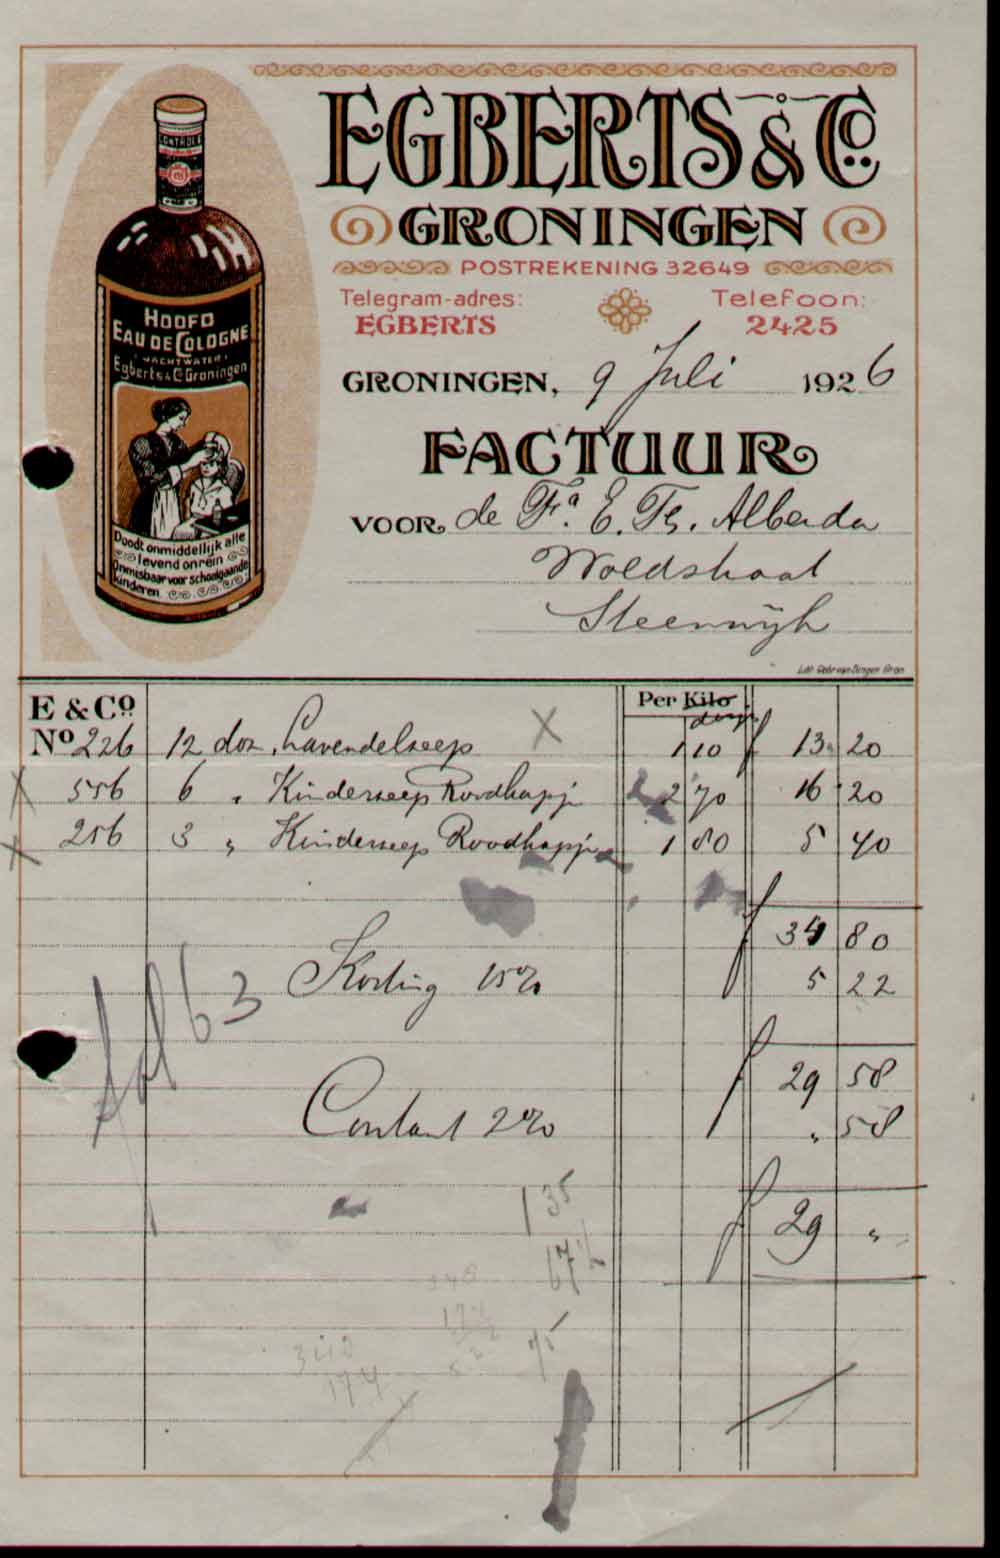 EGBERTS & Co.
GRONINGEN
POSTREKENING 32649
Telegram-adres:
EGBERTS
Telefoon:
2425
CONTROLE
HOOFD
EAU DE COLOGNE
(WACHTWATER)
Egberts & Co Groningen
Doodt onmiddellijk alle
levend onrein
Onmisbaar voor schoolgaande
kinderen.
GRONINGEN, 9 Juli 1926
FACTUUR
VOOR de Fa. E. Ts. Alberda
Woldstraat
Steenwijk
E & Co
Per Kilo
dozijn
No 226 12 doz. Lavendelzeep X 1 10 f 13 20
X 556 6 " Kinderzeep Roodkapje 2 70 16 20
X 256 3 " Kinderzeep Roodkapje 1 80 5 40
f 34 80
Korting 15% 5 22
fol 63
f 29 58
Contant 2% " 58
f 29 "
1 35
67 ½